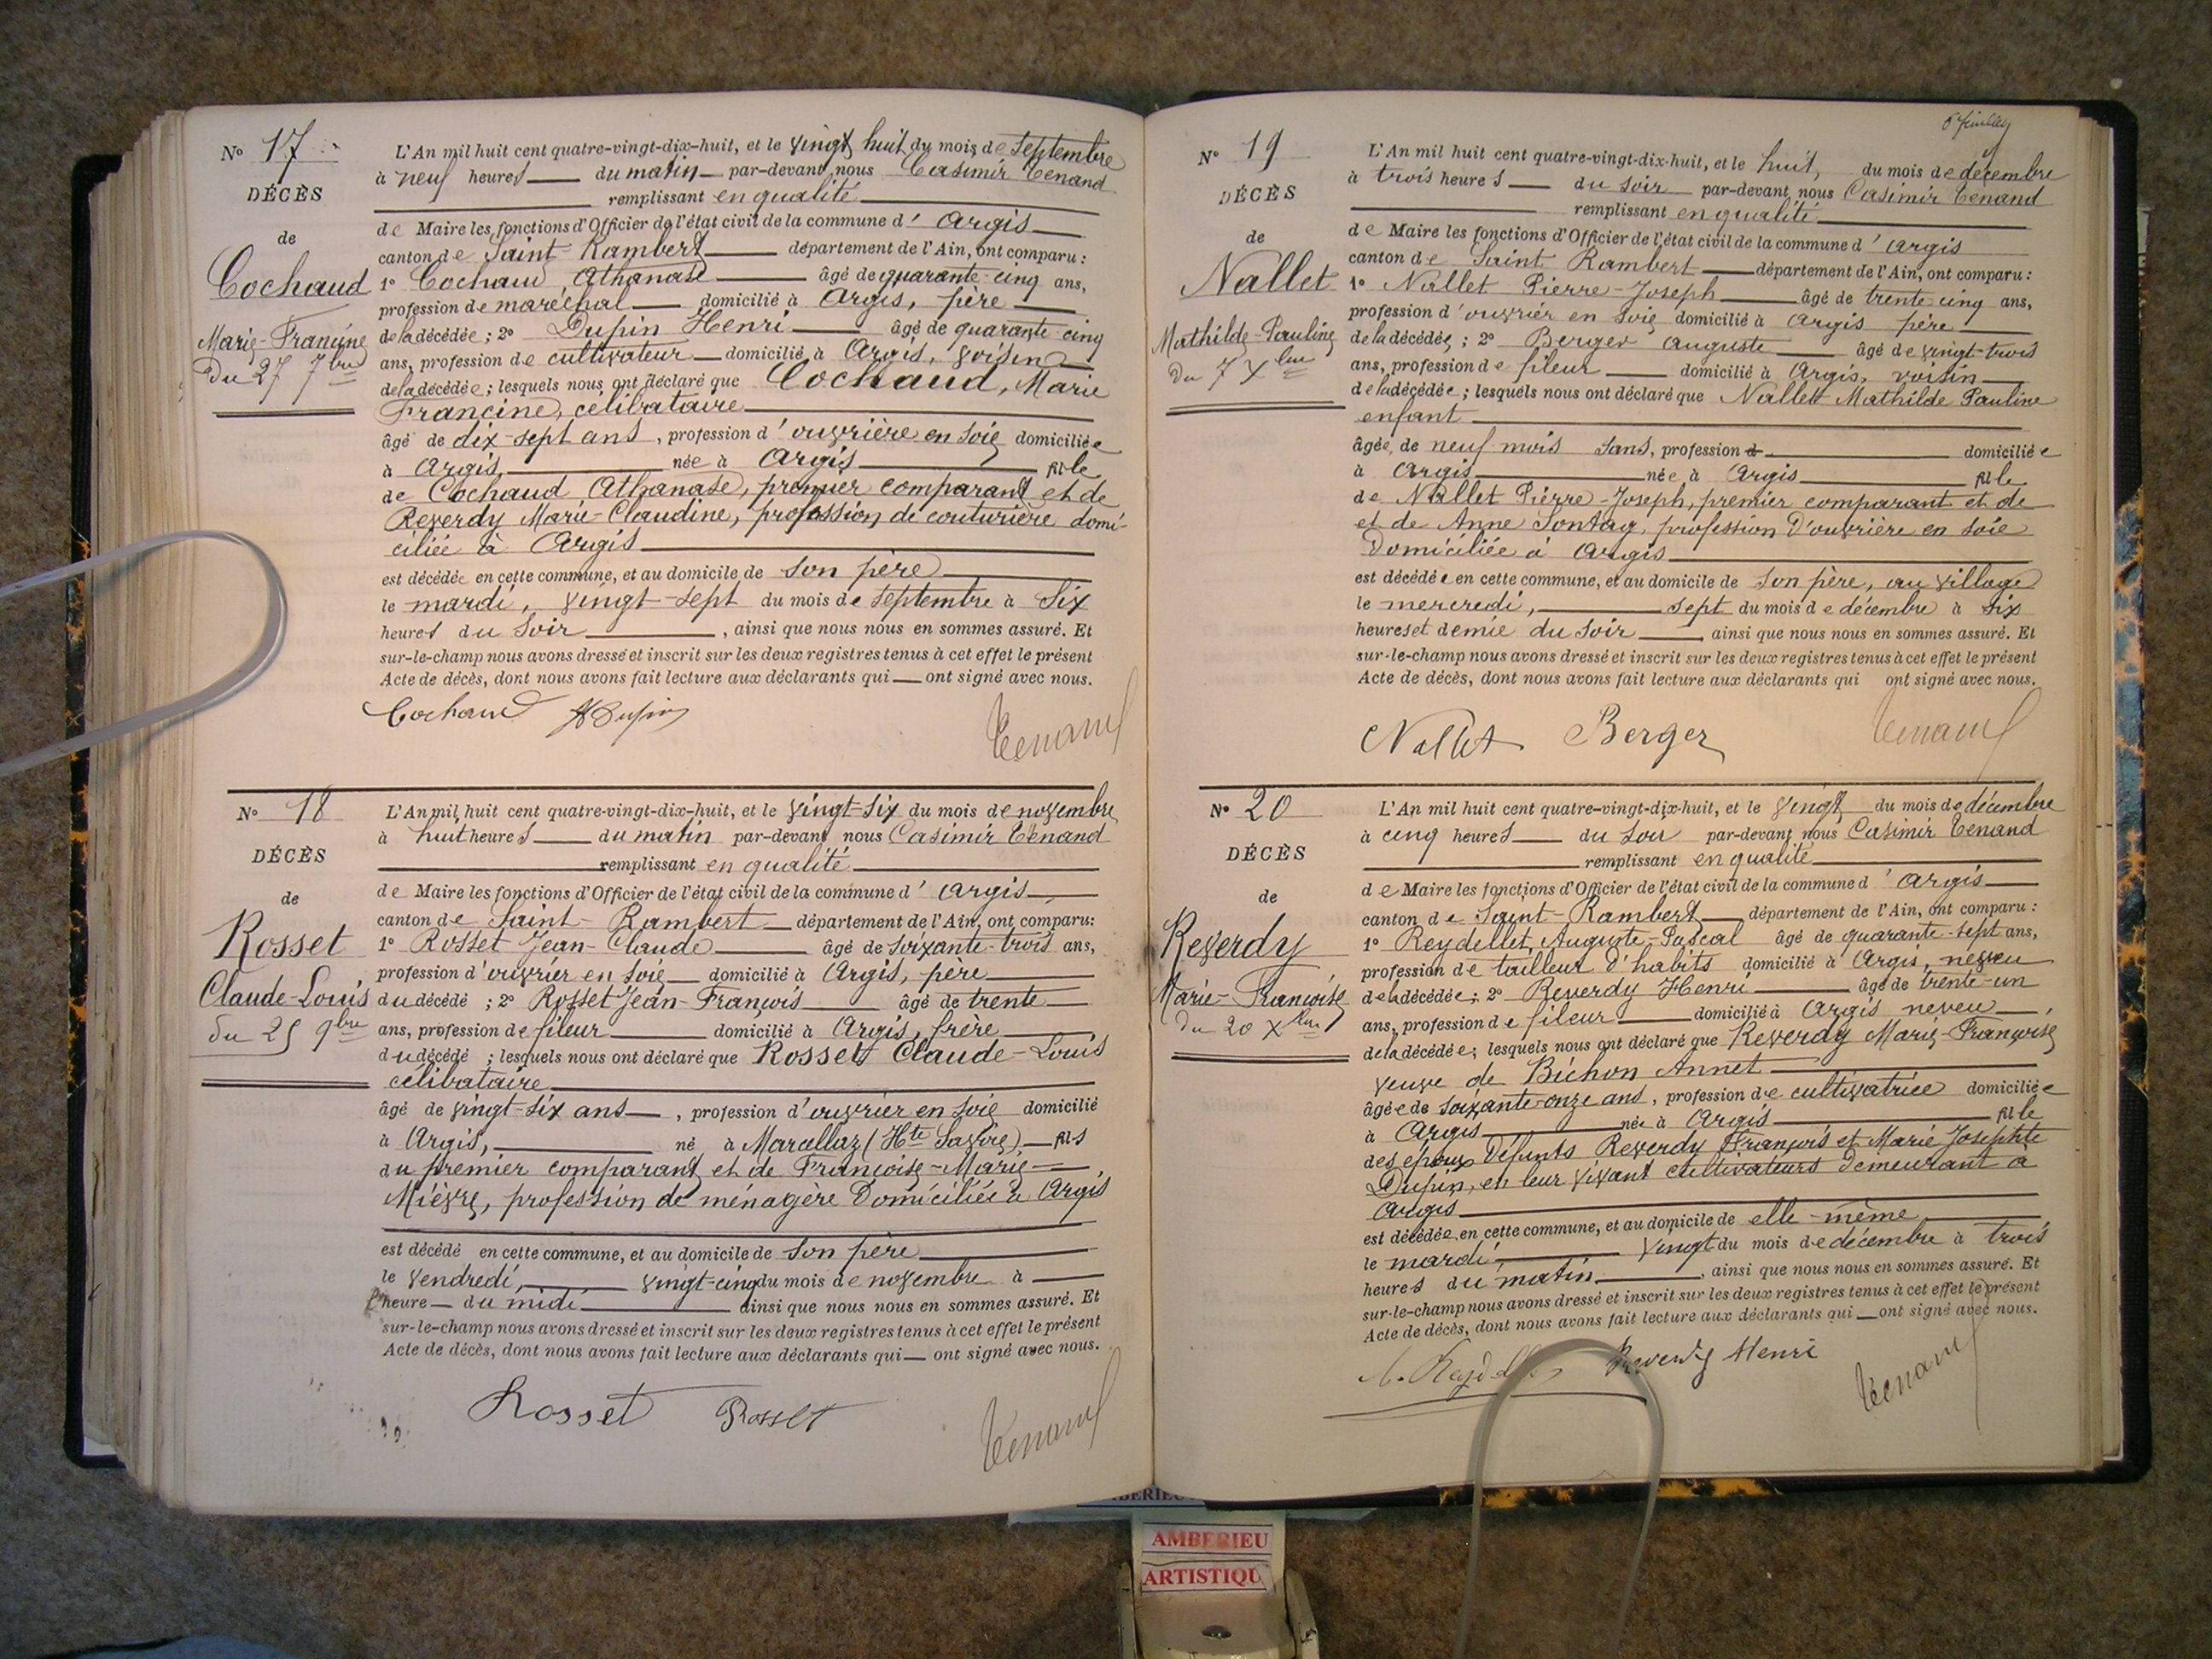 N° 17
DÉCÈS
de
Cochaud
Marie-Francine
Du 27 7bre
L'An mil huit cent quatre-vingt-dix-huit, et le vingt huit du mois de Septembre
à neuf heures du matin par-devant nous Casimir Tenand
remplissant en qualité
de Maire les fonctions d'Officier de l'état civil de la commune d'Argis
canton de Saint-Rambert département de l'Ain, ont comparu :
1° Cochaud Athanase âgé de quarante-cinq ans,
profession de maréchal domicilié à Argis, père
de la décédée ; 2° Dupin Henri âgé de quarante-cinq
ans, profession de cultivateur domicilié à Argis, voisin
de la décédée ; lesquels nous ont déclaré que Cochaud, Marie
Francine, célibataire
âgé de dix-sept ans, profession d'ouvrière en soie domiciliée
à Argis, née à Argis fille
de Cochaud Athanase, premier comparant et de
Reverdy Marie-Claudine, profession de couturière domi-
ciliée à Argis
est décédée en cette commune, et au domicile de son père
le mardi, vingt-sept du mois de septembre à six
heures du soir, ainsi que nous nous en sommes assuré. Et
sur-le-champ nous avons dressé et inscrit sur les deux registres tenus à cet effet le présent
Acte de décès, dont nous avons fait lecture aux déclarants qui ont signé avec nous.
Cochaud HDupin Tenand
N° 18
DÉCÈS
de
Rosset
Claude-Louis
du 25 9bre
L'An mil huit cent quatre-vingt-dix-huit, et le vingt-six du mois de novembre
à huit heures du matin par-devant nous Casimir Tenand
remplissant en qualité
de Maire les fonctions d'Officier de l'état civil de la commune d'Argis
canton de Saint-Rambert département de l'Ain, ont comparu :
1° Rosset Jean-Claude âgé de soixante-trois ans,
profession d'ouvrier en soie domicilié à Argis, père
du décédé ; 2° Rosset Jean-François âgé de trente
ans, profession de fileur domicilié à Argis, frère
du décédé ; lesquels nous ont déclaré que Rosset Claude-Louis
célibataire
âgé de vingt-six ans, profession d'ouvrier en soie domicilié
à Argis, né à Marcellaz (Hte Savoie) fils
du premier comparant et de Françoise-Marie
Mièvre, profession de ménagère domiciliée à Argis
est décédé en cette commune, et au domicile de son père
le vendredi, vingt-cinq du mois de novembre à
l'heure du midi ainsi que nous nous en sommes assuré. Et
sur-le-champ nous avons dressé et inscrit sur les deux registres tenus à cet effet le présent
Acte de décès, dont nous avons fait lecture aux déclarants qui ont signé avec nous.
Rosset Rosset Tenand
N° 19
DÉCÈS
de
Nallet
Mathilde-Pauline
Du 7 Xbre
L'An mil huit cent quatre-vingt-dix-huit, et le huit, du mois de décembre
à trois heures du soir par-devant nous Casimir Tenand
remplissant en qualité
de Maire les fonctions d'Officier de l'état civil de la commune d'Argis
canton de Saint Rambert département de l'Ain, ont comparu :
1° Nallet Pierre-Joseph âgé de trente-cinq ans,
profession d'ouvrier en soie domicilié à Argis père
de la décédée ; 2° Berger Auguste âgé de vingt-trois
ans, profession de fileur domicilié à Argis, voisin
de la décédée ; lesquels nous ont déclaré que Nallet Mathilde Pauline
enfant
âgée de neuf mois sans, profession d domiciliée
à Argis née à Argis fille
de Nallet Pierre-Joseph, premier comparant et de
et de Anne Sontag, profession d'ouvrière en soie
domiciliée à Argis
est décédée en cette commune, et au domicile de son père, au village
le mercredi, sept du mois de décembre à six
heures et demie du soir, ainsi que nous nous en sommes assuré. Et
sur-le-champ nous avons dressé et inscrit sur les deux registres tenus à cet effet le présent
Acte de décès, dont nous avons fait lecture aux déclarants qui ont signé avec nous.
Nallet Berger Tenand
N° 20
DÉCÈS
de
Reverdy
Marie-Françoise
du 20 Xbre
L'An mil huit cent quatre-vingt-dix-huit, et le vingt du mois de décembre
à cinq heures du soir par-devant nous Casimir Tenand
remplissant en qualité
de Maire les fonctions d'Officier de l'état civil de la commune d'Argis
canton de Saint-Rambert département de l'Ain, ont comparu :
1° Reydellet Auguste-Pascal âgé de quarante-sept ans,
profession de tailleur d'habits domicilié à Argis, neveu
de la décédée ; 2° Reverdy Henri âgé de trente-un
ans, profession de fileur domicilié à Argis neveu
de la décédée ; lesquels nous ont déclaré que Reverdy Marie-Françoise,
veuve de Bichon Annet
âgée de soixante-onze ans, profession de cultivatrice domiciliée
à Argis née à Argis fille
des époux défunts Reverdy François et Marie Josephte
Dupin, en leur vivant cultivateurs demeurant à
Argis
est décédée en cette commune, et au domicile de elle-même
le mardi vingt du mois de décembre à trois
heures du matin, ainsi que nous nous en sommes assuré. Et
sur-le-champ nous avons dressé et inscrit sur les deux registres tenus à cet effet le présent
Acte de décès, dont nous avons fait lecture aux déclarants qui ont signé avec nous.
Reverdy Henri Tenand
AMBERIEU
ARTISTIQU